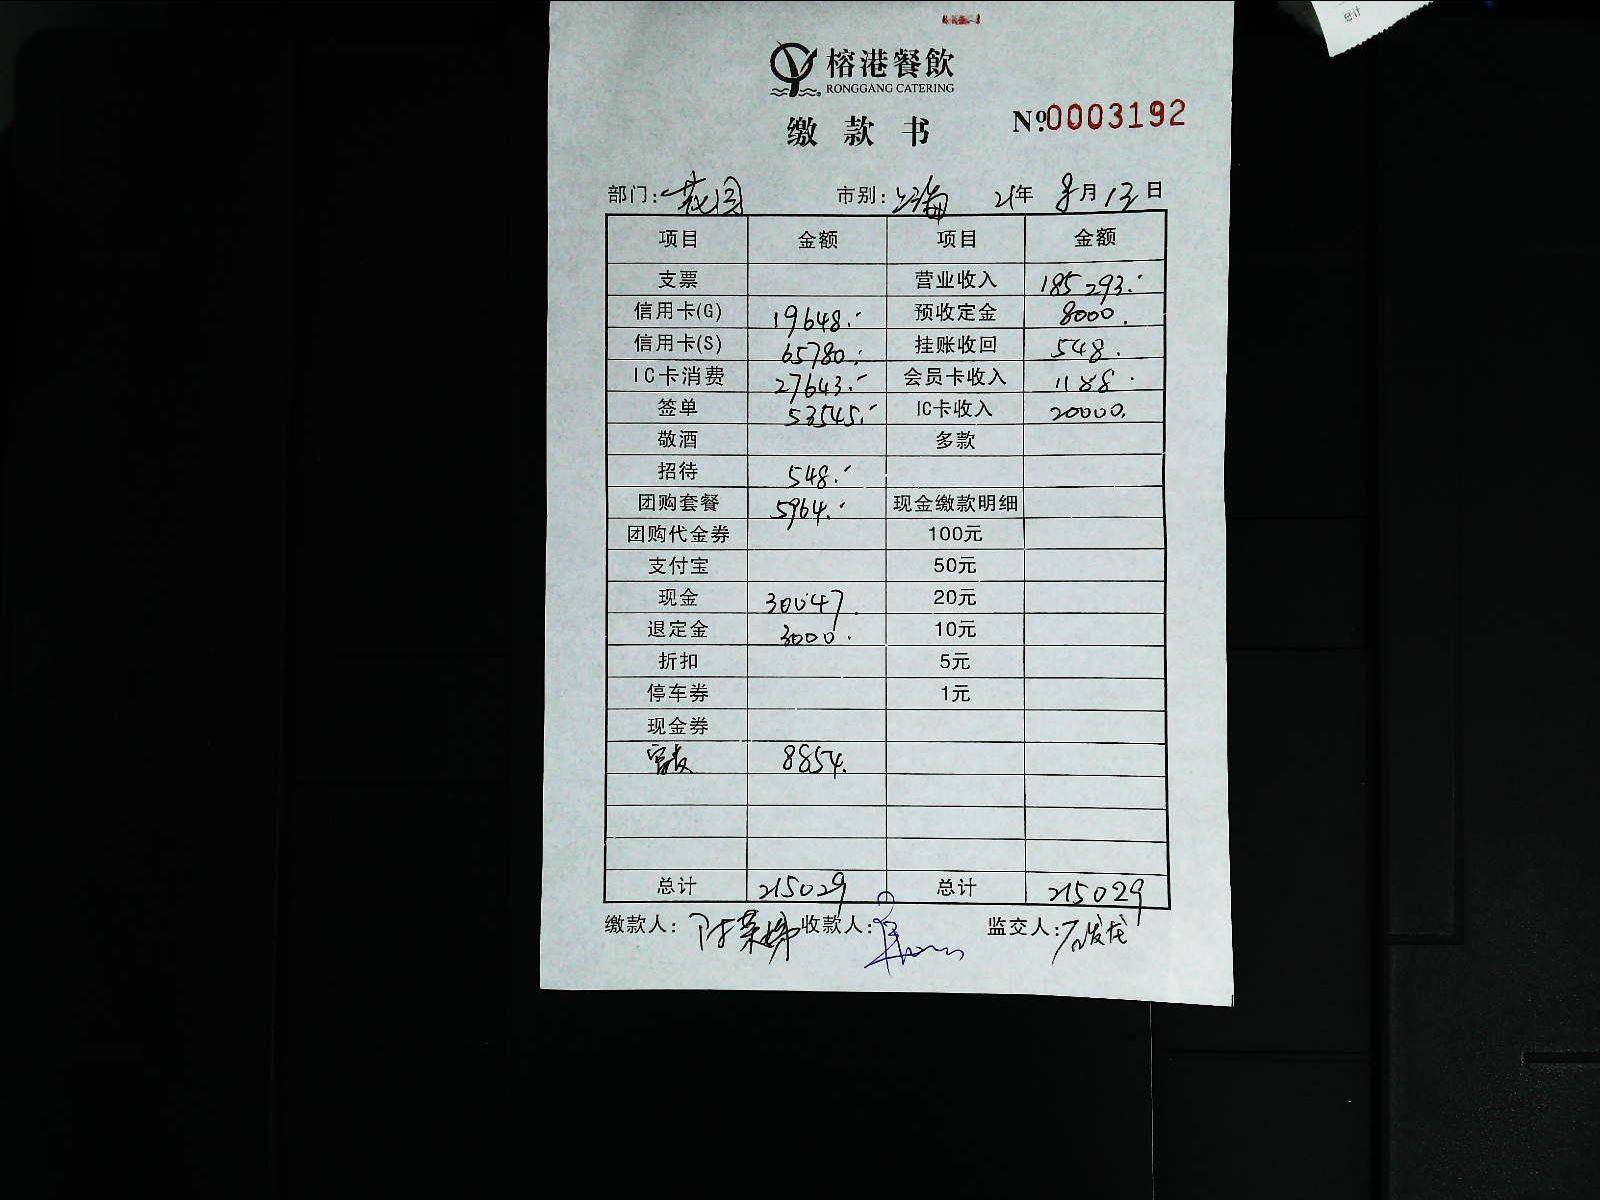 总计
榕港餐飲
RONGGANG CATERING
缴款书 №0003192
部门: 花园 市别: 上海 21年 8月13日
项目 金额 项目 金额
支票 营业收入 185293.-
信用卡(G) 19648.- 预收定金 8000.
信用卡(S) 65780.- 挂账收回 548.
IC卡消费 27643.- 会员卡收入 1188.
签单 53545.- IC卡收入 20000.
敬酒 多款
招待 548.-
团购套餐 5964.- 现金缴款明细
团购代金券 100元
支付宝 50元
现金 30047. 20元
退定金 3000. 10元
折扣 5元
停车券 1元
现金券
8854.
总计 215029 总计 215029
缴款人: 陈荣娣 收款人: 监交人: 石发龙